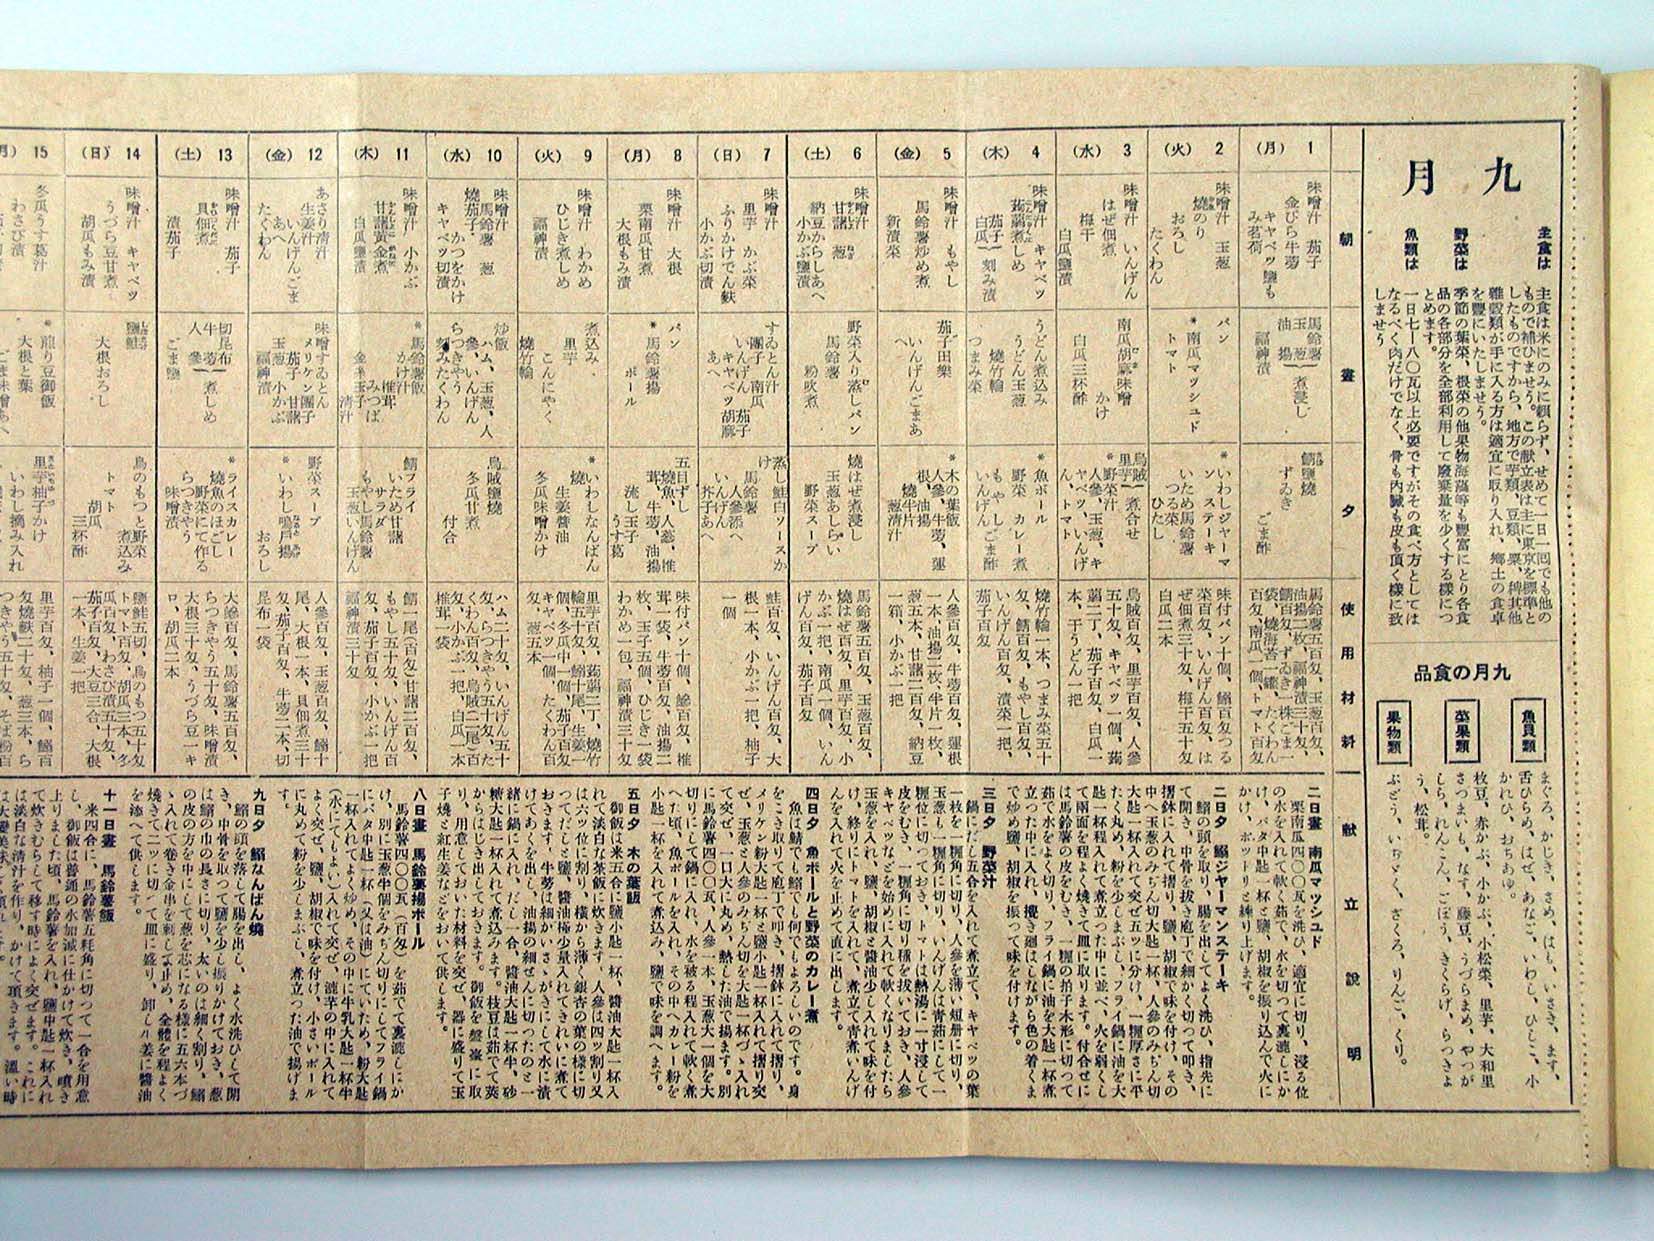 九月
主食は
主食は米にのみに頼らず、せめて一日一回でも他の
もので補ひませう。この献立表は主に東京を標準と
したものですから、地方で芋類、豆類、粟、稗其他
雜穀類が手に入る方は適宜に取り入れ、鄕土の食卓
を豐にいたしませう。
野菜は
季節の葉菜、根菜の他果物海藻等も豐富にとり各食
品の各部分を全部利用して廢棄量を少くする樣につ
とめます。
魚類は
一日七―八〇瓦以上必要ですがその食べ方としては
なるべく肉だけでなく、骨も內臟も皮も頂く樣に致
しませう
九月の食品
魚貝類
まぐろ、かじき、さめ、はも、いさき、ます、
舌びらめ、はぜ、あなご、いわし、ひしこ、小
かれひ、おちあゆ。
菜果類
枝豆、赤かぶ、小かぶ、小松菜、里芋、大和里
さつまいも、なす、藤豆、うづらまめ、やつが
しら、れんこん、ごぼう、きくらげ、らつきよ
う、松茸。
果物類
ぶどう、いちゞく、ざくろ、りんご、くり。
朝
晝
夕
使用材料
献立說明
1
(月)
味噌汁 茄子
金びら牛蒡
キャベツ鹽も
み茗荷
馬鈴薯
玉葱 煮浸し
油揚
福神漬
鯖鹽燒
ずゐき ごま酢
馬鈴薯五百匁、玉葱百匁、
油揚二枚、福神漬三十匁、
鯖百匁、ずゐき一株、ごま一
袋、燒海苔一罐、たくわん
百匁、南瓜一個、トマト百匁
2
(火)
味噌汁 玉葱
燒のり
おろし
たくわん
パン
*南瓜マッシュド
トマト
*いわしジャーマ
ンステーキ
いため馬鈴薯
つる菜
ひたし
味付パン十個、鰯百匁つる
菜百匁、いんげん百匁、は
ぜ佃煮三十匁、梅干五十匁
白瓜二本
3
(水)
味噌汁 いんげん
はぜ佃煮
梅干
白瓜鹽漬
南瓜胡麻味噌
かけ
白瓜三杯酢
烏賊
里芋 煮合せ
*野菜汁
人參、玉葱、キ
ャベツ、いんげ
ん、トマト
烏賊百匁、里芋百匁、人參
五十匁、キャベツ一個、蒟
蒻二丁、茄子百匁、白瓜一
本、干うどん一把
4
(木)
味噌汁 キャベツ
蒟蒻煮しめ
茄子
白瓜 刻み漬
うどん煮込み
うどん玉葱
燒竹輪
つまみ菜
*魚ボール
野菜 カレー煮
もやしごま酢
いんげん
燒竹輪一本、つまみ菜五十
匁、鯖百匁、もやし百匁、
いんげん百匁、漬菜一把、
茄子百匁
5
(金)
味噌汁 もやし
馬鈴薯炒め煮
新漬菜
茄子田樂
いんげんごまあ
へ
*木の葉飯
人參、牛蒡、蓮
根、油揚
燒半片
葱淸汁
人參百匁、牛蒡百匁、蓮根
一本、油揚二枚、半片一枚、
葱五本、甘藷二百匁、納豆
一箱、小かぶ一把
6
(土)
味噌汁 葱
甘藷
納豆からしあへ
小かぶ鹽漬
野菜入り蒸しパン
馬鈴薯
粉吹煮
燒はぜ煮浸し
玉葱あしらい
野菜スープ
馬鈴薯五百匁、玉葱百匁、
燒はぜ百匁、里芋百匁、小
かぶ一把、南瓜一個、いん
げん百匁、茄子百匁
7
(日)
味噌汁
里芋 かぶ菜
ふりかけでん麩
小かぶ切漬
すゐとん汁
團子 南瓜
いんげん 茄子
キャベツ胡麻
あへ
蒸し鮭白ソースか
け
馬鈴薯
人參添へ
いんげん
芥子あへ
鮭百匁、いんげん百匁、大
根一本、小かぶ一把、柚子
一個
8
(月)
味噌汁 大根
栗南瓜甘煮
大根もみ漬
パン
*馬鈴薯揚
ボール
五目ずし
燒魚、人參、椎
茸、牛蒡、油揚
流し玉子
うす葛
味付パン十個、鰺百匁、椎
茸一袋、牛蒡百匁、油揚二
枚、玉子五個、ひじき一袋
わかめ一包、福神漬三十匁
9
(火)
味噌汁 わかめ
ひじき煮しめ
福神漬
煮込み
里芋
こんにやく
燒竹輪
*いわしなんばん
燒
生姜醬油
冬瓜味噌かけ
里芋百匁、蒟蒻二丁、燒竹
輪五十匁、鰯十尾、生姜一
個、冬瓜中一個、茄子百匁
キャベツ一個、たくわん百
匁、葱五本
10
(水)
味噌汁
馬鈴薯 葱
燒茄子、かつをかけ
キャベツ切漬
炒飯
ハム、玉葱、人
參、いんげん
らつきやう
刻みたくわん
烏賊鹽燒
冬瓜甘煮
付合
ハム二十匁、いんげん五十
匁、らつきやう五十匁、た
くわん百匁、烏賊二尾(百
匁)、小かぶ一把、白瓜一本
椎茸一袋
11
(木)
味噌汁 小かぶ
甘藷黃金煮
白瓜鹽漬
*馬鈴薯飯
かけ汁 椎茸
みつば
金糸玉子 淸汁
鯖フライ
いため甘藷
サラダ
もやし馬鈴薯
玉葱いんげん
鯖一尾(百匁)甘藷二百匁、
もやし五十匁、いんげん百
匁、茄子百匁、小かぶ一把
福神漬三十匁
12
(金)
あさり淸汁
生姜汁
いんげんごま
あへ
たくわん
味噌すゐとん
メリケン團子
茄子 甘藷
玉葱 小かぶ
福神漬
野菜スープ
*いわし鳴戶揚
おろし
人參百匁、玉葱百匁、鰯十
尾、大根一本、貝佃煮三十
匁、茄子百匁、牛蒡二本、切
昆布一袋
13
(土)
味噌汁 茄子
貝佃煮
漬茄子
切昆布
牛蒡 煮しめ
人參
ごま鹽
*ライスカレー
燒魚のほごし
野菜にて作る
らつきやう
味噌漬
大鰺百匁、馬鈴薯五百匁、
らつきやう五十匁、味噌漬
大根三十匁、うづら豆一キ
ロ、胡瓜二本
14
(日)
味噌汁 キャベツ
うづら豆甘煮
胡瓜もみ漬
鹽鮭
大根おろし
鳥のもつと野菜
煮込み
トマト 胡瓜
三杯酢
鹽鮭五切、鳥のもつ五十匁
トマト百匁、胡瓜三本、冬
瓜百匁、わさび漬五十匁、
茄子百匁、大豆三合、大根
一本、生姜一把
15
冬瓜うす葛汁
わさび漬
*煎り豆御飯
大根と葉
ごま味噌あへ
里芋柚子かけ
いわし摘み入れ
里芋百匁、柚子一個、鰯百
匁燒麩二十匁、葱三本、ら
つきやう五十匁、そば粉百
二日晝 南瓜マッシュド
栗南瓜四〇〇瓦を洗ひ、適宜に切り、浸る位
の水を入れて軟く茹で、水を切つて裏漉しにか
け、バタ中匙一杯と鹽、胡椒を振り込んで火に
かけ、ポッテリと練り上げます。
二日夕 鰯ジヤーマンステーキ
鰯の頭を取り、腸を出してよく洗ひ、指先に
て開き、中骨を拔き庖丁で細かく切つて叩き、
摺鉢に入れて摺り、鹽、胡椒で味を付け、その
中へ玉葱のみぢん切大匙一杯、人參のみぢん切
大匙一杯入れて突ぜ五ツに分け、一糎厚さに平
たく丸め、粉を少しまぶし、フライ鍋に油を大
匙一杯程入れて煮立つた中に並べ、火を弱くし
て兩面を程よく燒きて皿に取ります。付合せに
は馬鈴薯の皮をむき、一糎の拍子木形に切つて
茹で水をよく切り、フライ鍋に油を大匙一杯煮
立つた中に入れ、攪き廻はしながら色の着くま
で炒め鹽、胡椒を振つて味を付けます。
三日夕 野菜汁
鍋にだし五合を入れて煮立て、キャベツの葉
一枚を一糎角に切り、人參を薄い短册に切り、
玉葱も一糎角に切り、いんげんは靑茹にして一
糎位に切つておき、トマトは熱湯に一寸浸して
皮をむき、一糎角に切り種を拔いておき、人參
キャベツなどを始めに入れて軟くなりましたら
玉葱を入れ、鹽、胡椒と醬油少し入れて味を付
け、終りにトマトを入れて、煮立て靑煮いんげ
んを入れて火を止めて直に出します。
四日夕 魚ボールと野菜のカレー煮
魚は鯖でも鰯でも何でもよろしいのです。身
をこき取りて庖丁で叩き、摺鉢に入れて摺り、
メリケン粉大匙一杯と鹽小匙一杯入れて摺り突
ぜ、玉葱と人參のみぢん切を大匙一杯づゝ入れ
て突ぜ、一口大に丸め、熱した油で揚げます。別
に馬鈴薯四〇〇瓦、人參一本、玉葱大一個を大
切りにして鍋に入れ、水を被る程入れて軟く煮
へた頃、魚ボールを入れ、その中へカレー粉を
小匙一杯を入れて煮込み、鹽で味を調へます。
五日夕 木の葉飯
御飯は米五合に鹽小匙一杯、醬油大匙一杯入
れて淡白な茶飯に炊きます。人參は四ツ割り又
は六ツ位に割り、橫から薄く銀杏の葉の樣に切
つてだしと鹽、醬油極少量入れてきれいに煮て
おきます。牛蒡は細かいさゝがきにして水に漬
けてあくを出し、油揚の細ぜんに切つたのと一
緖に鍋に入れ、だし一合、醬油大匙一杯半、砂
糖大匙一杯入れて煮込みます。枝豆は茹でて莢
からはじき出しておきます。御飯を盤臺に取
り、用意しておいた材料を突ぜ、器に盛りて玉
子燒と紅生姜などをおいて供します。
八日晝 馬鈴薯揚ボール
馬鈴薯四〇〇瓦(百匁)を茹でて裏漉しにか
け、別に玉葱半個をみぢん切りにしてフライ鍋
にバタ中匙一杯(又は油)にていため、粉大匙
一杯入れてよく炒め、その中に牛乳大匙一杯半
(水にてもよい)入れて突ぜ、漉芋の中に入れて
よく突ぜ、鹽、胡椒で味を付け、小さいボール
に丸めて粉を少しまぶし、煮立つた油で揚げま
す。
九日夕 鰯なんばん燒
鰯の頭を落して腸を出し、よく水洗ひして開
き、中骨を取つて鹽を少し振りかけておき、葱
は鰯の巾の長さに切り、太いのは細く割り、鰯
の皮の方を中にして葱を芯になる樣に五六本づ
ゝ入れて卷き金串を刺して止め、全體を程よく
燒きて二ツに切つて皿に盛り、卸し生姜に醬油
を添へて供します。
十一日晝 馬鈴薯飯
米四合に、馬鈴薯五耗角に切つて一合を用意
し、御飯は普通の水加減に仕かけて炊き、噴き
上りました頃、馬鈴薯を入れ、鹽中匙一杯入れ
て炊きむらして移す時によく突ぜます。これに
は淡白な淸汁を作り、かけて頂きます。溫い時